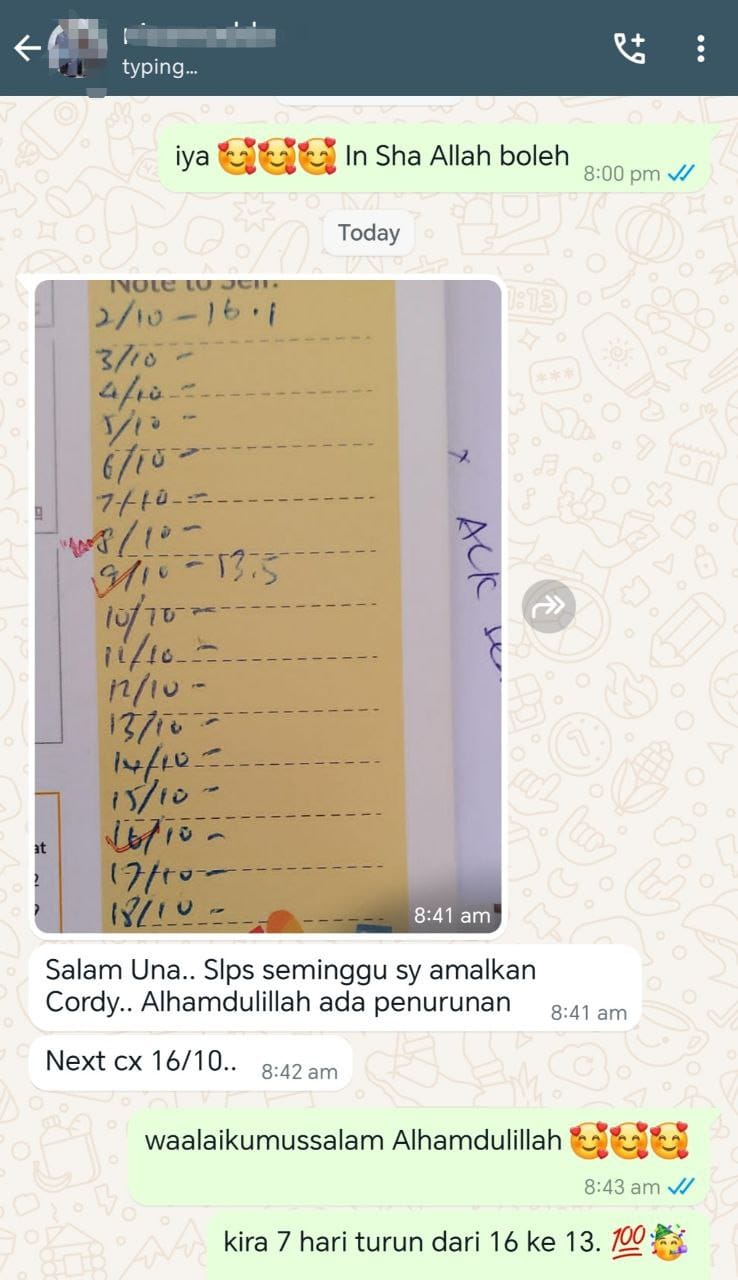 typing...
iya 🥰🥰🥰 In Sha Allah boleh
8:00 pm
Today
Note to Self:
2/10 - 16.1
3/10 -
4/10 -
5/10 -
6/10 -
7/10 -
8/10 -
9/10 - 13.5
10/10 -
11/10 -
12/10 -
13/10 -
14/10 -
15/10 -
16/10 -
17/10 -
18/10 -
at
8:41 am
Salam Una.. Slps seminggu sy amalkan
Cordy.. Alhamdulillah ada penurunan
8:41 am
Next cx 16/10..
8:42 am
waalaikumussalam Alhamdulillah 🥰🥰🥰
8:43 am
kira 7 hari turun dari 16 ke 13. 💯🥳